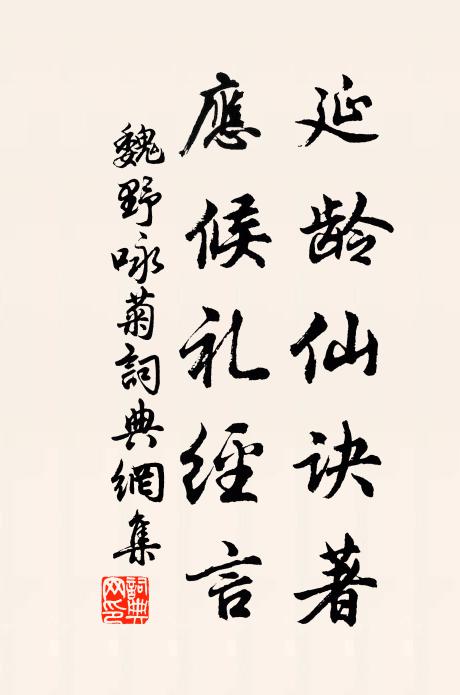 延龄仙诀著
應候礼經言
魏野咏菊詞典網集
詞典网印